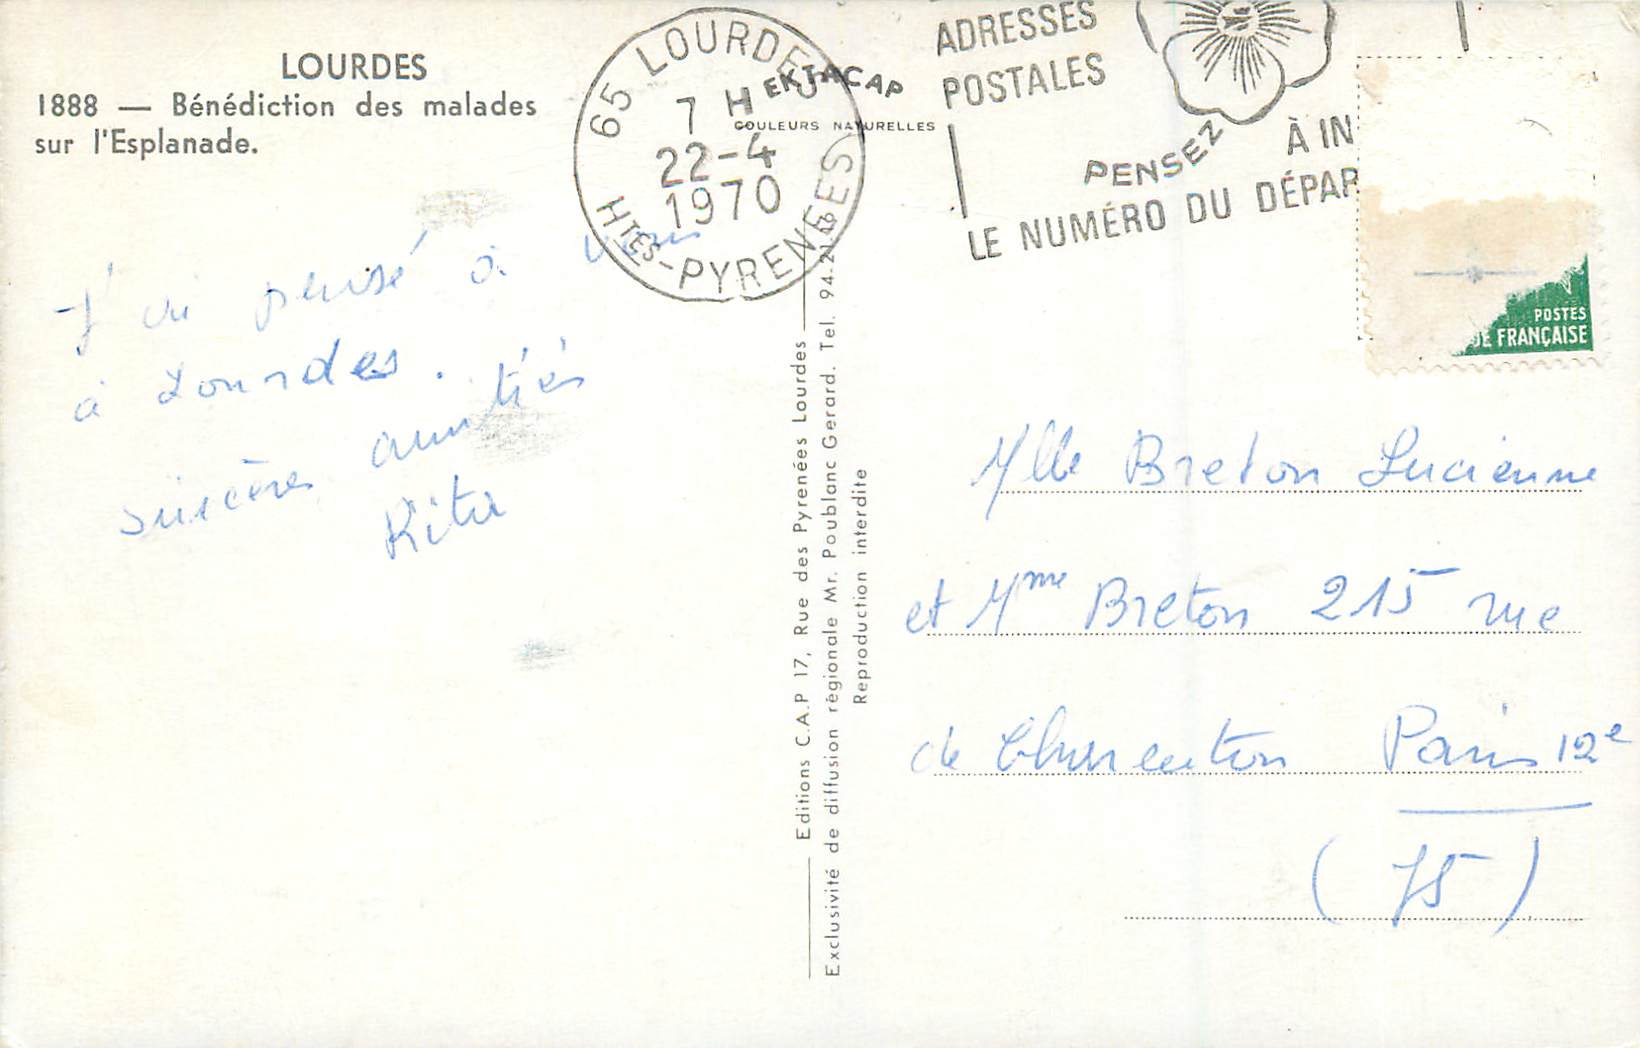 LOURDES
1888 — Bénédiction des malades
sur l'Esplanade.
65 LOURDES
7 H
22-4
1970
HTES-PYRENEES
EKTACAP
COULEURS NATURELLES
ADRESSES
POSTALES
PENSEZ
À IN
LE NUMÉRO DU DÉPAR
POSTES
DE FRANÇAISE
J'ai pensé à vous
à Lourdes.
sincères amitiés
Rita
Editions C.A.P 17, Rue des Pyrenées Lourdes
Exclusivité de diffusion régionale Mr. Poublanc Gerard. Tel. 94-21-16
Reproduction interdite
Mlle Breton Lucienne
et Mme Breton 215 rue
de Charenton Paris 12e
(75)